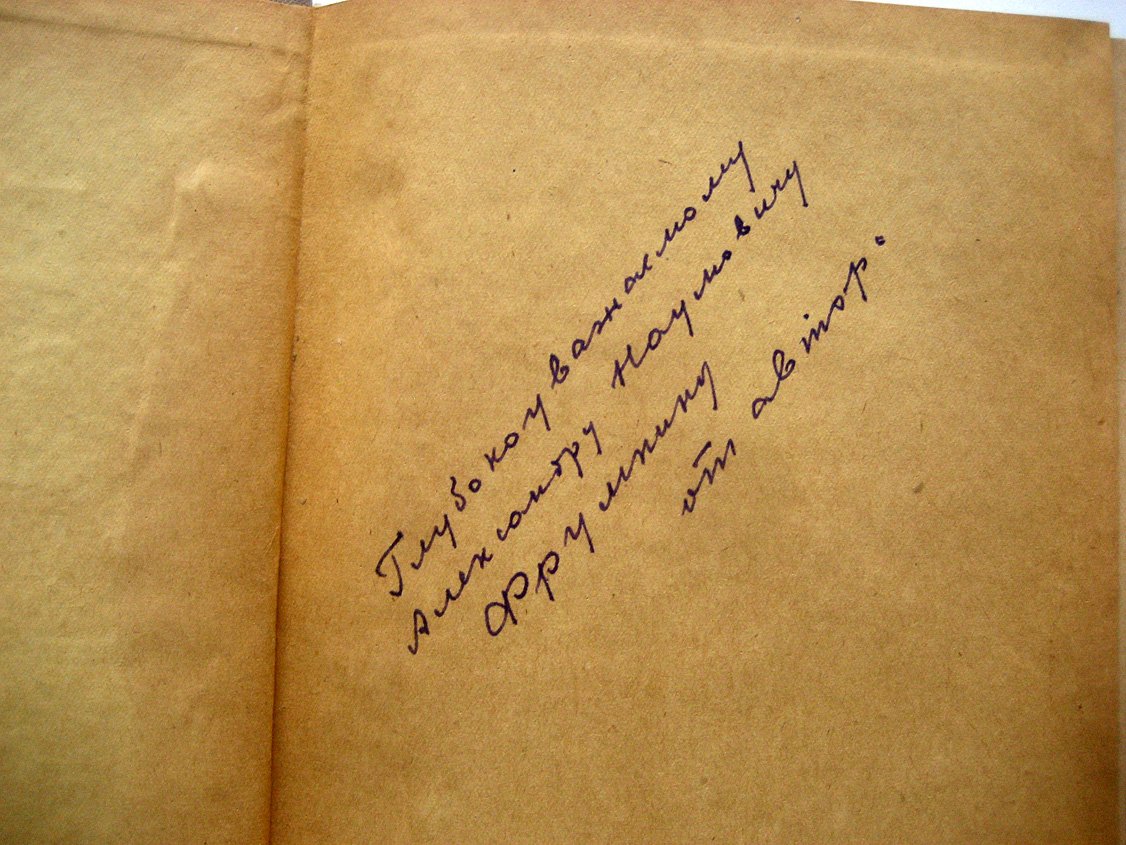 Глубокоуважаемому
Александру Наумовичу
Фрумкину
от автора